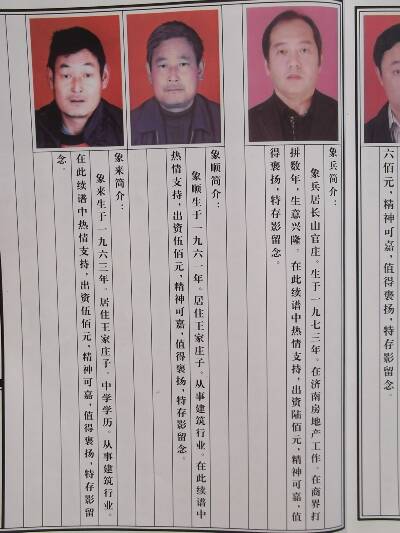 六佰元，精神可嘉，值得褒扬，特存影留念。
象兵简介：
象兵居长山官庄。生于一九七三年。在济南房地产工作。在商界打
拼数年，生意兴隆。在此续谱中热情支持，出资陆佰元，精神可嘉，值
得褒扬，特存影留念。
象顺简介：
象顺生于一九六一年。居住王家庄子。从事建筑行业。在此续谱中
热情支持，出资伍佰元，精神可嘉，值得褒扬，特存影留念。
象来简介：
象来生于一九六三年。居住王家庄子。中学学历。从事建筑行业。
在此续谱中热情支持，出资伍佰元，精神可嘉，值得褒扬，特存影留
念。